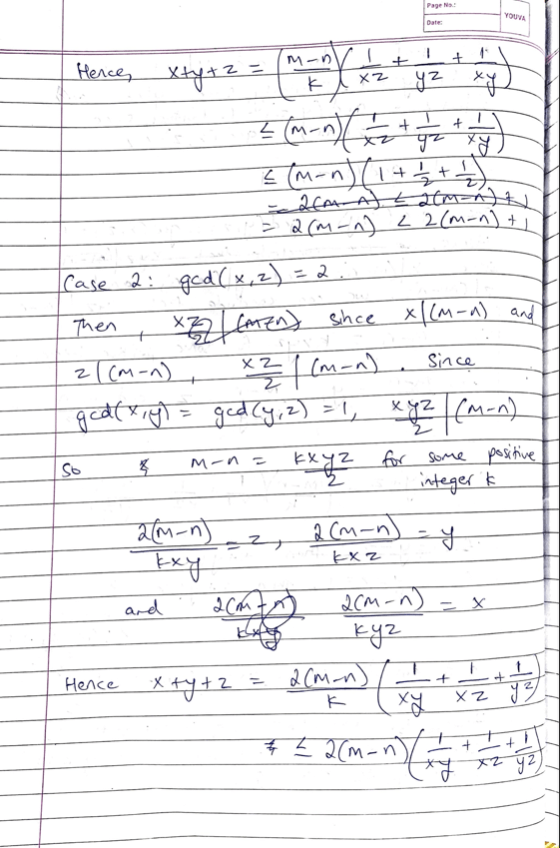 Page No.:
Date:
YOUVA
Hence, x+y+z = (m-n/k)(1/xz + 1/yz + 1/xy)
≤ (m-n)(1/xz + 1/yz + 1/xy)
≤ (m-n)(1 + 1/2 + 1/2)
= 2(m-n) ≤ 2(m-n)+1
= 2(m-n) < 2(m-n)+1
Case 2: gcd(x,z) = 2.
Then, xz/2 | (m-n) since x|(m-n) and
z|(m-n), xz/2 | (m-n). Since
gcd(x,y) = gcd(y,z) = 1, xyz/2 | (m-n)
So m-n = kxyz/2 for some positive
integer k
2(m-n)/kxy = z, 2(m-n)/kxz = y
and 2(m-n)/kxy 2(m-n)/kyz = x
Hence x+y+z = 2(m-n)/k (1/xy + 1/xz + 1/yz)
≤ 2(m-n)(1/xy + 1/xz + 1/yz)